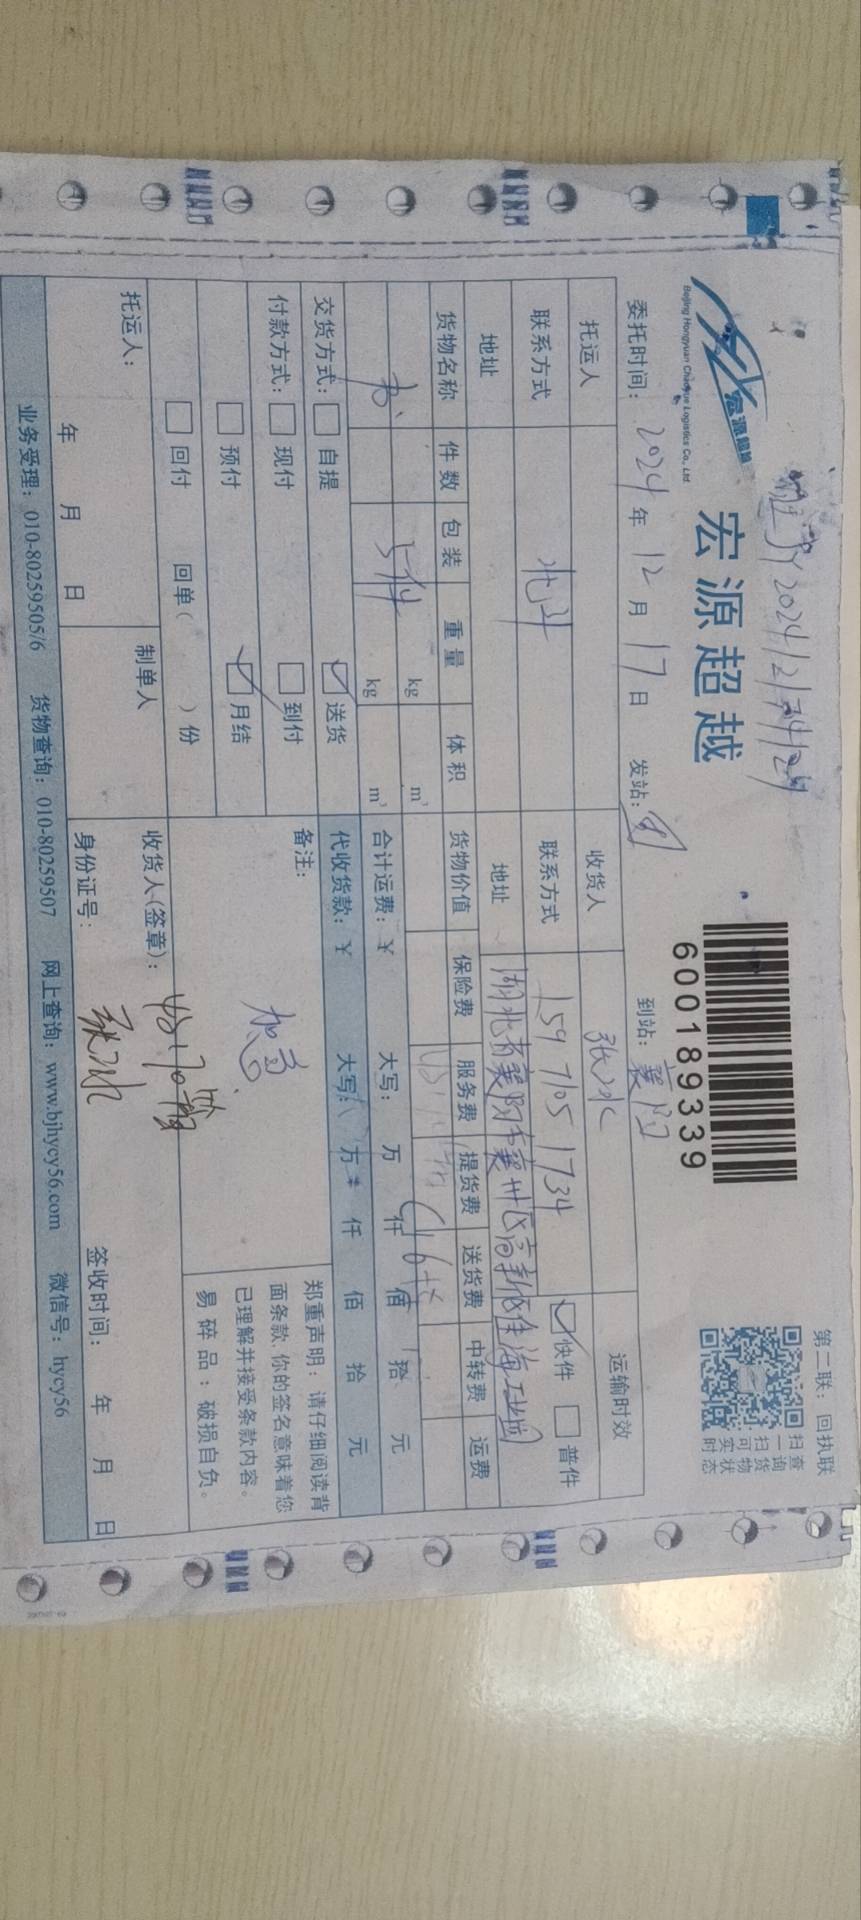 第二联：回执联
宏源超越
Beijing Hongyuan Chaoyue Logistics Co., Ltd
宏源超越
600189339
扫一扫可实时
查询货物状态
委托时间：2024年12月17日 发站： 到站：襄阳
托运人 收货人 张冰 运输时效
联系方式 联系方式 159 7105 1734 快件 普件
地址 地址 湖北省襄阳市襄州区
货物名称 件数 包装 重量 体积 货物价值 保险费 服务费 提货费 送货费 中转费 运费
5件 kg m³
kg m³
合计运费：￥ 大写： 万 仟 佰 拾 元
交货方式： 自提 送货 代收货款：￥ 大写： 万 仟 佰 拾 元
付款方式： 现付 到付 备注：
预付 月结 加急
回付 回单（ ）份
郑重声明：请仔细阅读背
面条款，你的签名意味着您
已理解并接受条款内容。
易碎品：破损自负。
托运人： 制单人 收货人（签章）：
张冰
年 月 日 身份证号： 签收时间： 年 月 日
业务受理：010-80259505/6 货物查询：010-80259507 网上查询：www.bjhycy56.com 微信号：hycy56